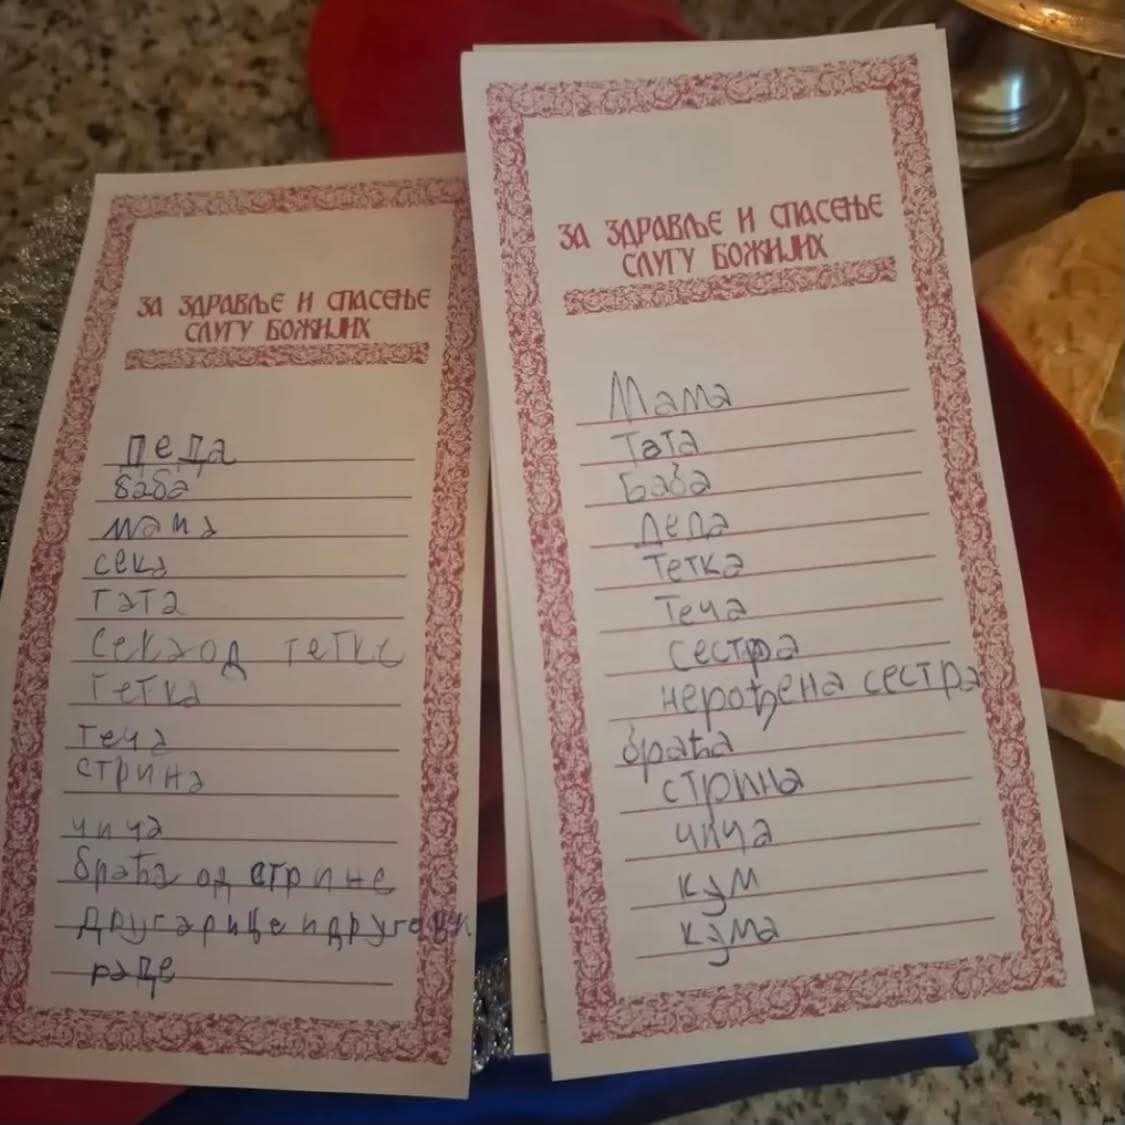 ЗА ЗДРАВЉЕ И СПАСЕЊЕ
СЛУГУ БОЖИЈИХ
деда
баба
мама
сека
тата
сека од тетке
тетка
теча
стрина
чича
браћа од стрине
другарице и другови
раде
ЗА ЗДРАВЉЕ И СПАСЕЊЕ
СЛУГУ БОЖИЈИХ
Мама
тата
баба
деда
тетка
теча
сестра
нерођена сестра
браћа
стрина
чича
кум
кума